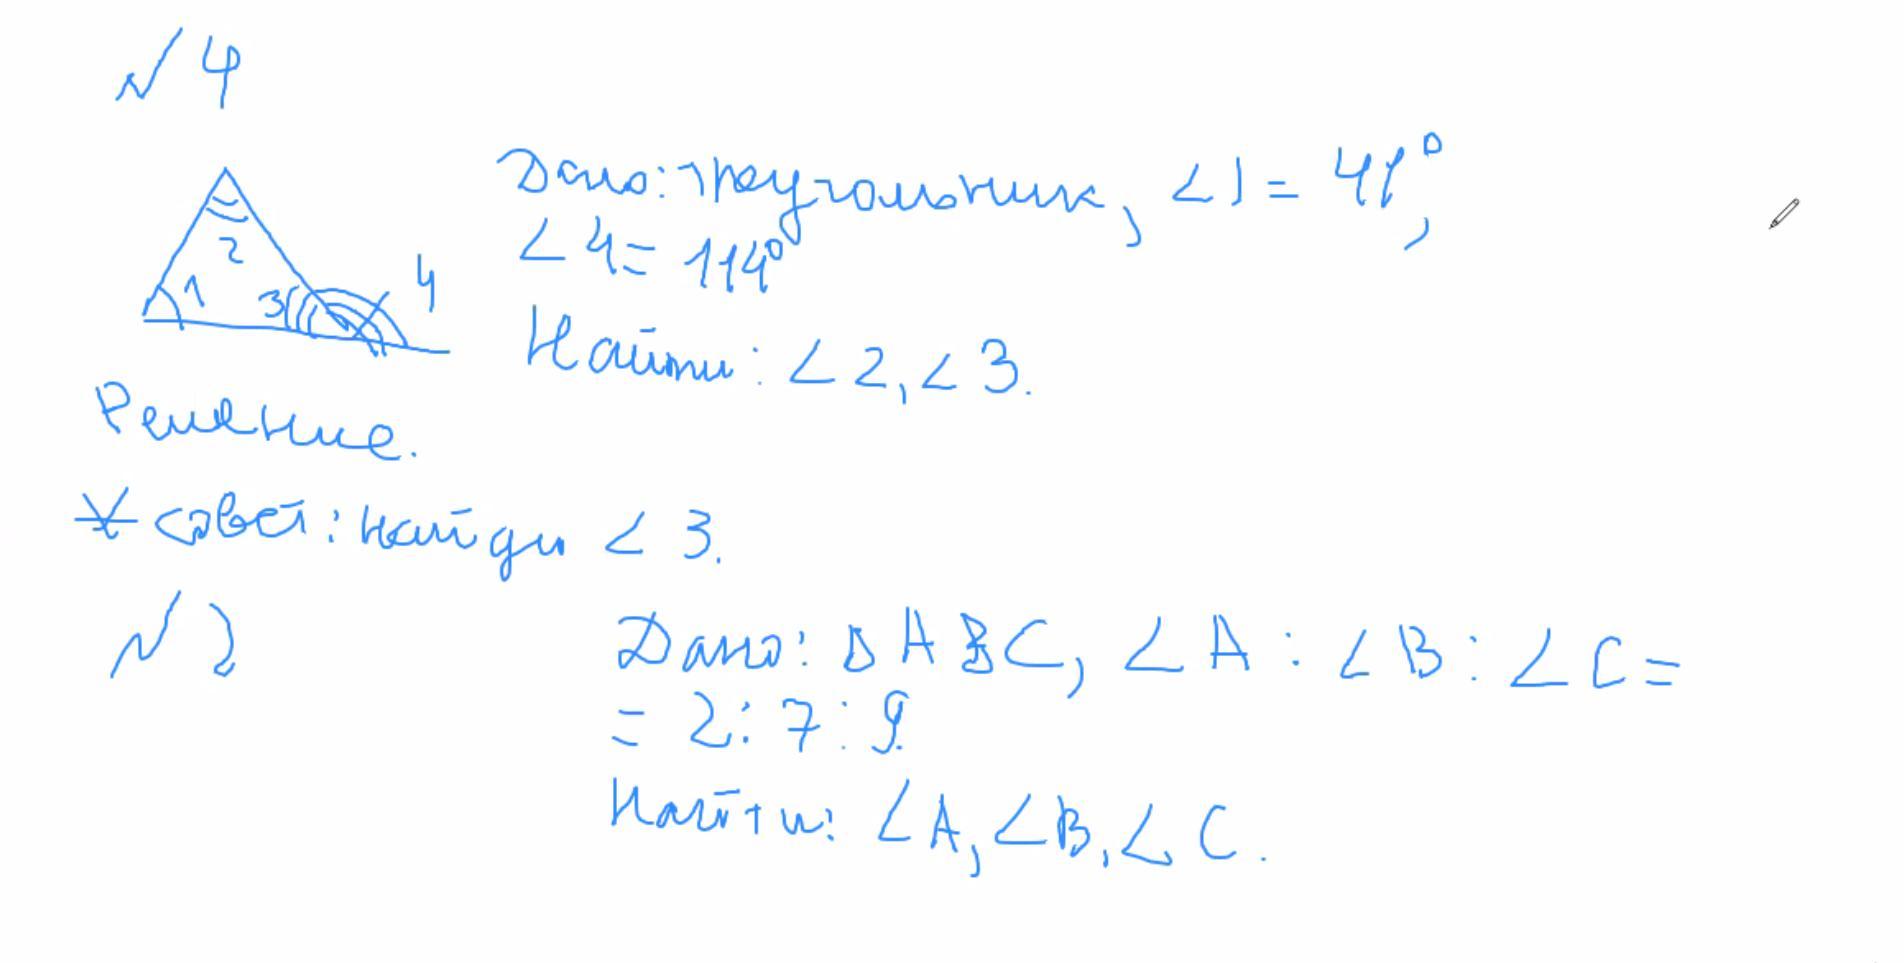 № 4
Дано: треугольник, ∠1 = 41°,
∠4 = 114°
Найти: ∠2, ∠3.
2
1
3
4
Решение.
* совет: найди ∠3.
№ 2
Дано: ΔABC, ∠A : ∠B : ∠C =
= 2 : 7 : 9.
Найти: ∠A, ∠B, ∠C.